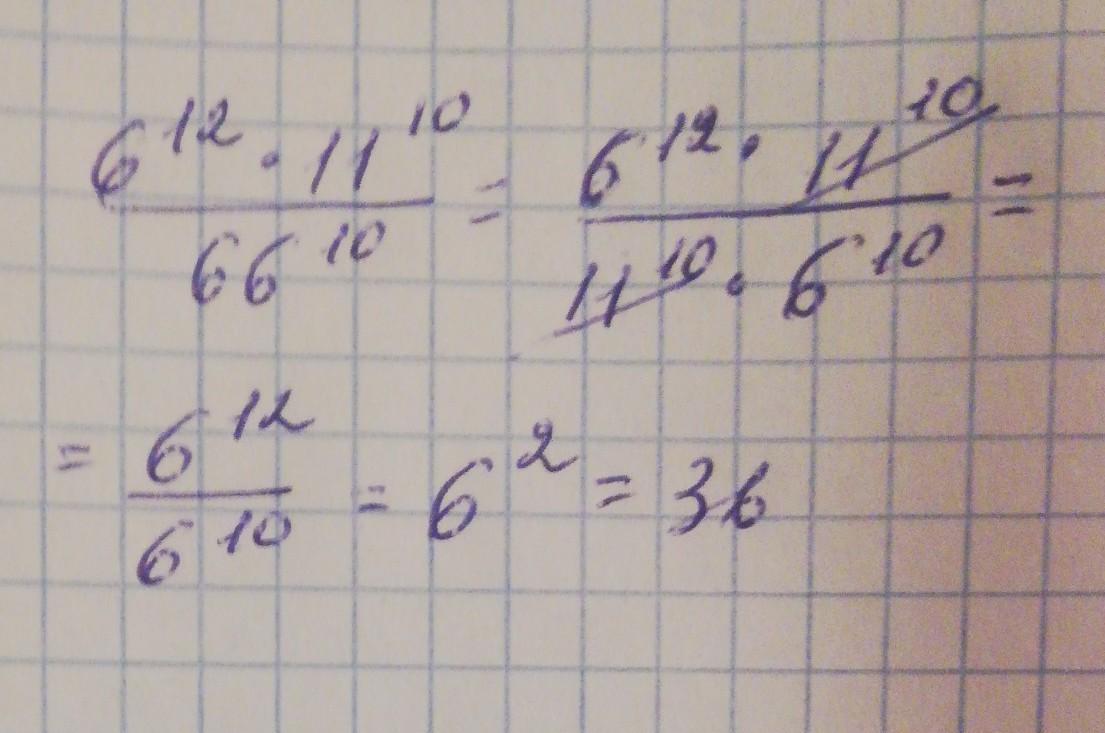 6^12 · 11^10 / 66^10 = 6^12 · 11^10 / 11^10 · 6^10 =
= 6^12 / 6^10 = 6^2 = 36